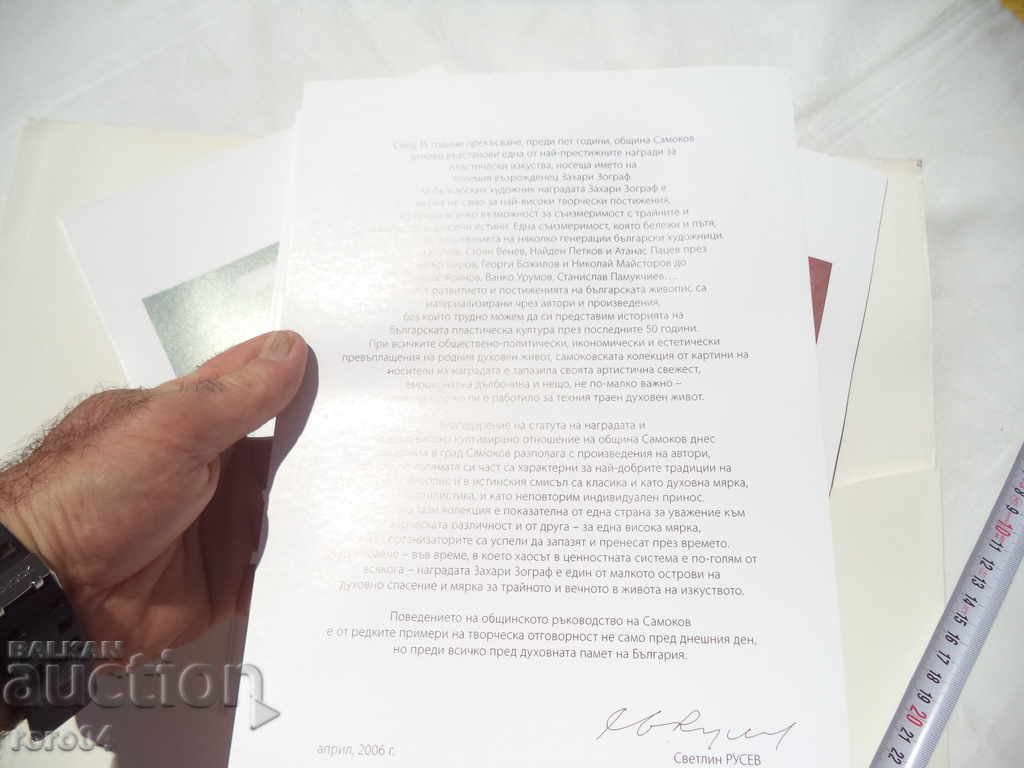 След 15 години прекъсване, преди пет години, община Самоков
отново възстанови една от най-престижните награди за
пластически изкуства, носеща името на
великия възрожденец Захари Зограф.
За българския художник наградата Захари Зограф е
не само за най-високи творчески постижения,
всичко възможност за съизмеримост с трайните и
истини. Една съизмеримост, която бележи и пътя,
на няколко генерации български художници.
Стоян Венев, Найден Петков и Атанас Пацев през
Киров, Георги Божилов и Николай Майсторов до
Яранов, Ванко Урумов, Станислав Памукчиев…
развитието и постиженията на българската живопис са
материализирани чрез автори и произведения,
без които трудно можем да си представим историята на
българската пластическа култура през последните 50 години.
При всичките обществено-политически, икономически и естетически
превъплащения на родния духовен живот, самоковската колекция от картини на
носители на наградата е запазила своята артистична свежест,
емоционална дълбочина и нещо, не по-малко важно –
ли е работило за техния траен духовен живот.
Благодарение на статута на наградата и
високо култивирано отношение на община Самоков днес
в град Самоков разполага с произведения на автори,
голямата си част са характерни за най-добрите традиции на
и в истинския смисъл са класика и като духовна мярка,
стилистика, и като неповторим индивидуален принос.
тази колекция е показателна от една страна за уважение към
творческата различност и от друга – за една висока мярка,
организаторите са успели да запазят и пренесат през времето.
– във време, в което хаосът в ценностната система е по-голям от
всякога – наградата Захари Зограф е един от малкото острови на
духовно спасение и мярка за трайното и вечното в живота на изкуството.
Поведението на общинското ръководство на Самоков
е от редките примери на творческа отговорност не само пред днешния ден,
но преди всичко пред духовната памет на България.
април, 2006 г.
Светлин РУСЕВ
BALKAN
auction
rero84
8 9 10 11 12 13 14 15 16 17 18 19 20 21 22